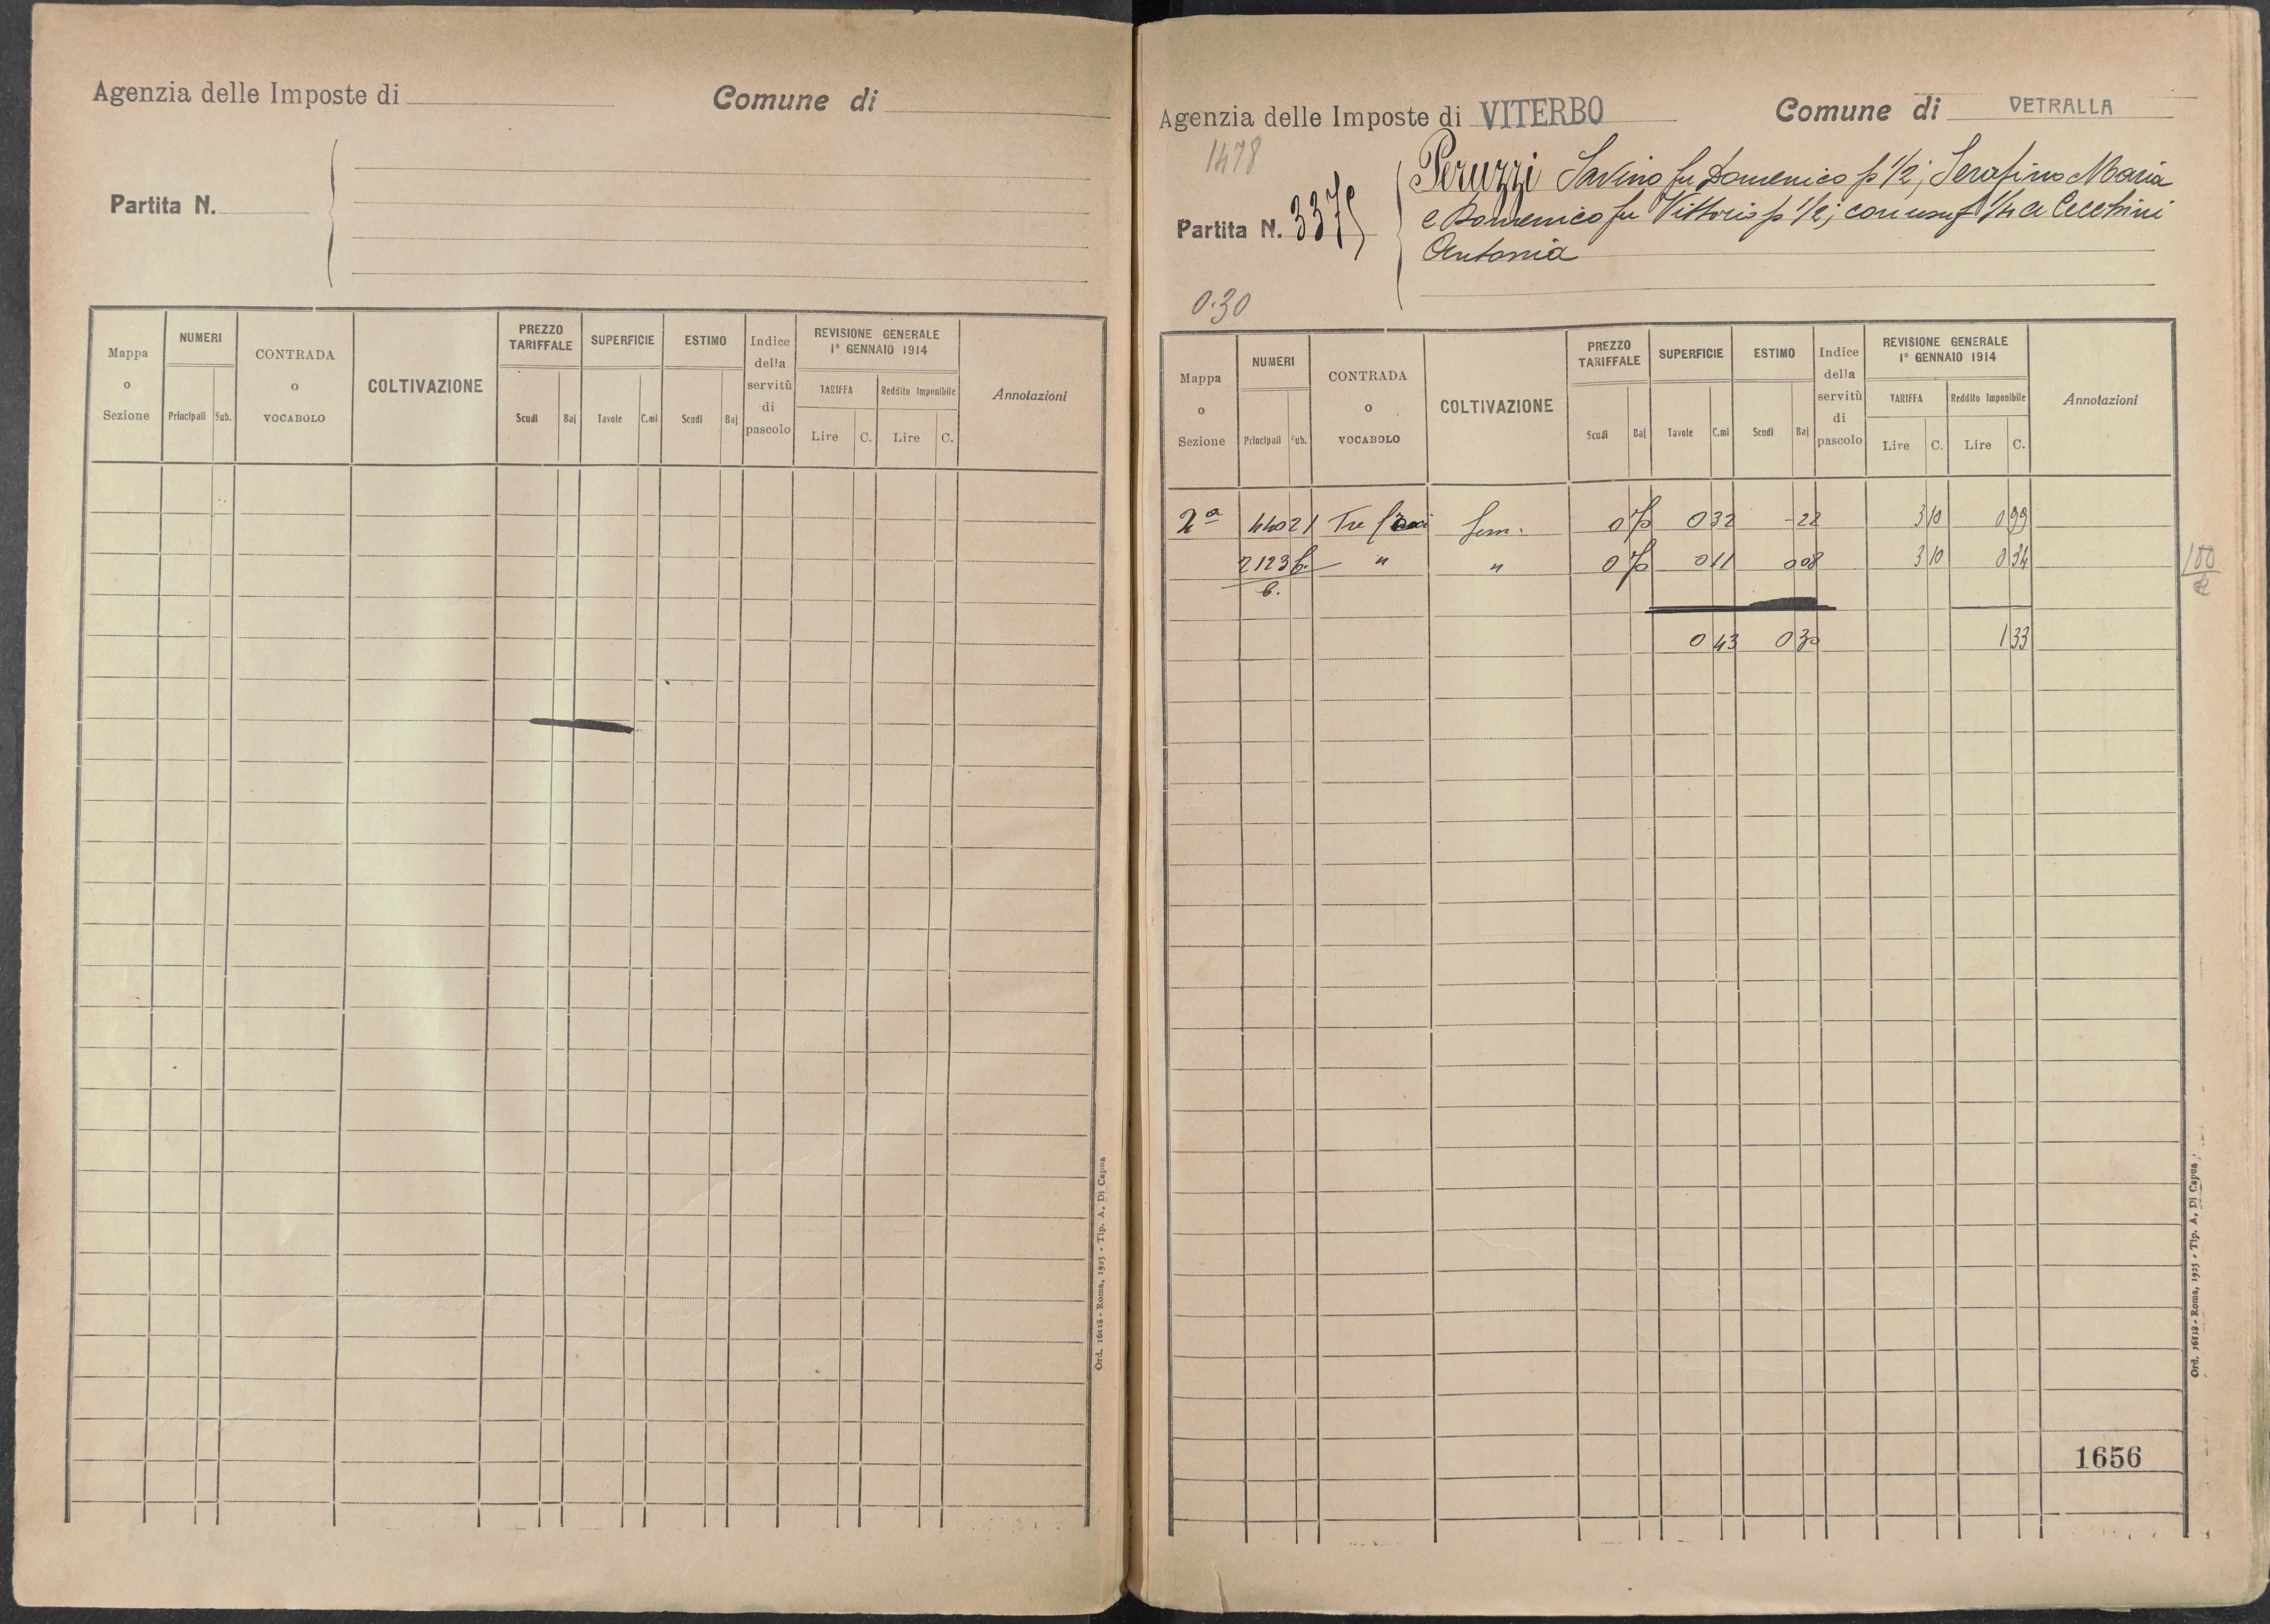 Agenzia delle Imposte di
Comune di
Partita N.
Mappa o Sezione
NUMERI
Principali Sub.
CONTRADA o VOCABOLO
COLTIVAZIONE
PREZZO TARIFFALE
Scudi Baj
SUPERFICIE
Tavole C.mi
ESTIMO
Scudi Baj
Indice della servitù di pascolo
REVISIONE GENERALE
1° GENNAIO 1914
TARIFFA Reddito Imponibile
Lire C. Lire C.
Annotazioni
Ord. 16118 - Roma, 1923 - Tip. A. Di Capua
Agenzia delle Imposte di VITERBO
Comune di VETRALLA
1478
Partita N. 3375
Peruzzi Savino fu Domenico p 1/2; Serafino Maria
e Domenico fu Vittorio p 1/2; con usuf 1/4 a Cecchini
Antonia
0.30
Mappa o Sezione
NUMERI
Principali Sub.
CONTRADA o VOCABOLO
COLTIVAZIONE
PREZZO TARIFFALE
Scudi Baj
SUPERFICIE
Tavole C.mi
ESTIMO
Scudi Baj
Indice della servitù di pascolo
REVISIONE GENERALE
1° GENNAIO 1914
TARIFFA Reddito Imponibile
Lire C. Lire C.
Annotazioni
2a 4402 1 Tre Sem. 0 32 - 22 3 10 0 99
2123 b. " " 0 11 0 08 3 10 0 34
6.
100
0 43 0 30 1 33
1656
Ord. 16118 - Roma, 1923 - Tip. A. Di Capua